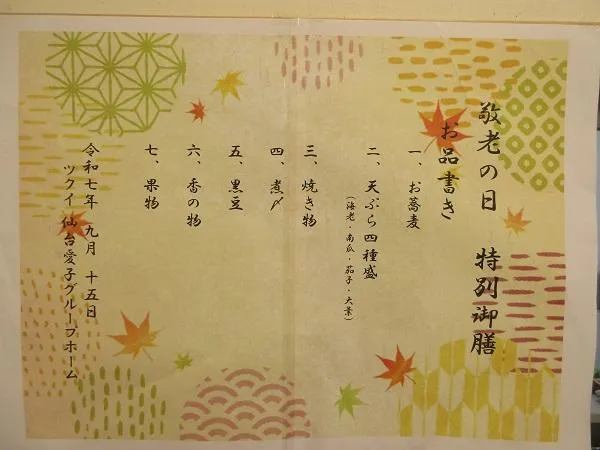 敬老の日 特別御膳
お品書き
一、お蕎麦
二、天ぷら四種盛
(海老・南瓜・茄子・大葉)
三、焼き物
四、煮〆
五、黒豆
六、香の物
七、果物
令和七年 九月 十五日
ツクイ仙台愛子グループホーム